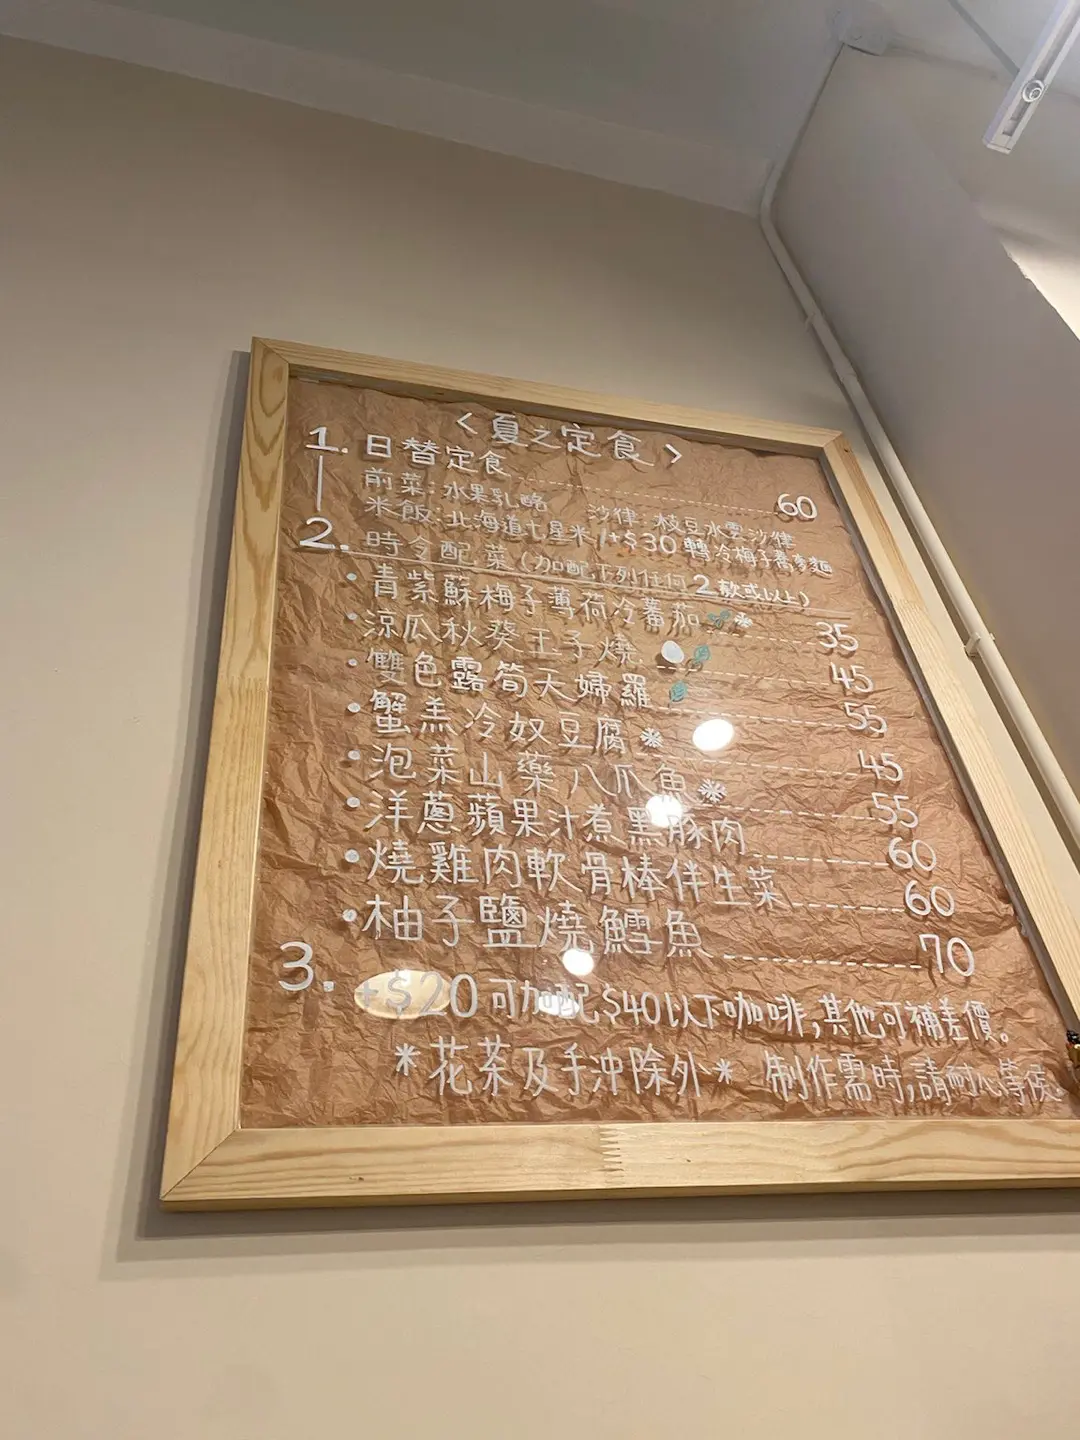 〈夏之定食〉
1. 日替定食 60
前菜:水果乳酪 沙律:枝豆水雲沙律
米飯:北海道七星米/+$30轉冷梅子蕎麥麵
2. 時令配菜(加配下列任何2款或以上)
·青紫蘇梅子薄荷冷蕃茄 35
·涼瓜秋葵玉子燒 45
·雙色露筍天婦羅 55
·蟹羔冷奴豆腐 45
·泡菜山藥八爪魚 55
·洋蔥蘋果汁煮黑豚肉 60
·燒雞肉軟骨棒伴生菜 60
·柚子鹽燒鱈魚 70
3. +$20可加配$40以下咖啡,其他可補差價。
*花茶及手沖除外* 制作需時,請耐心等侯。